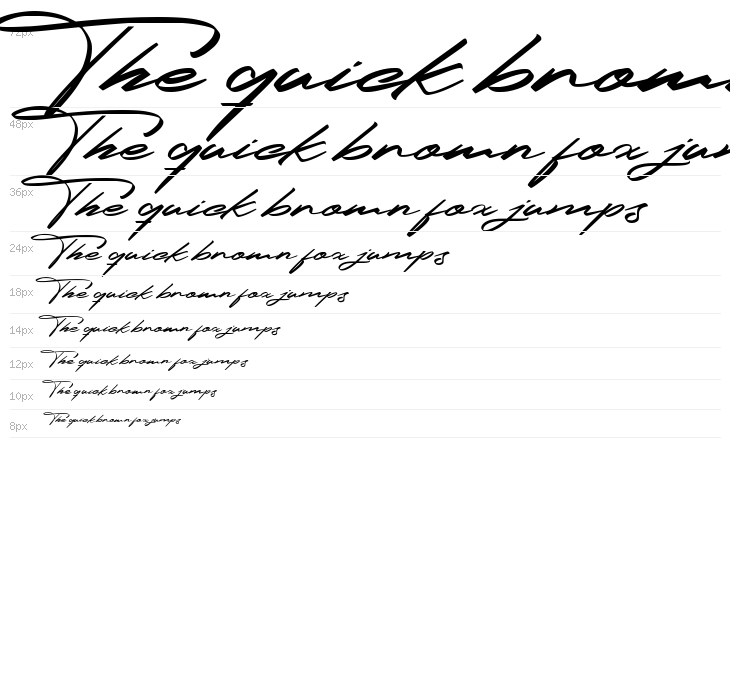 72px
The quick brown
48px The quick brown fox jum
36px The quick brown fox jumps
24px The quick brown fox jumps
18px The quick brown fox jumps
14px The quick brown fox jumps
12px The quick brown fox jumps
10px The quick brown fox jumps
8px The quick brown fox jumps